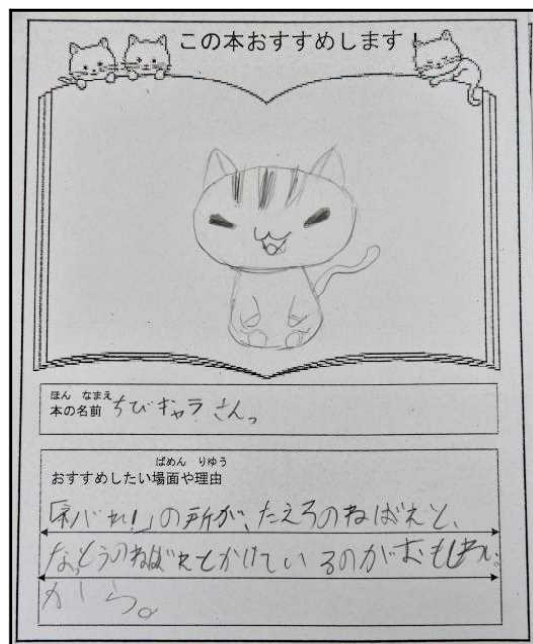 この本おすすめします!
ほん なまえ
本の名前 ちびギャラ さんっ
ばめん りゆう
おすすめしたい場面や理由
「ネバれ!」の所が、たえろのねばれと、
なっとうのねばれとかけているのがおもしろい
から。